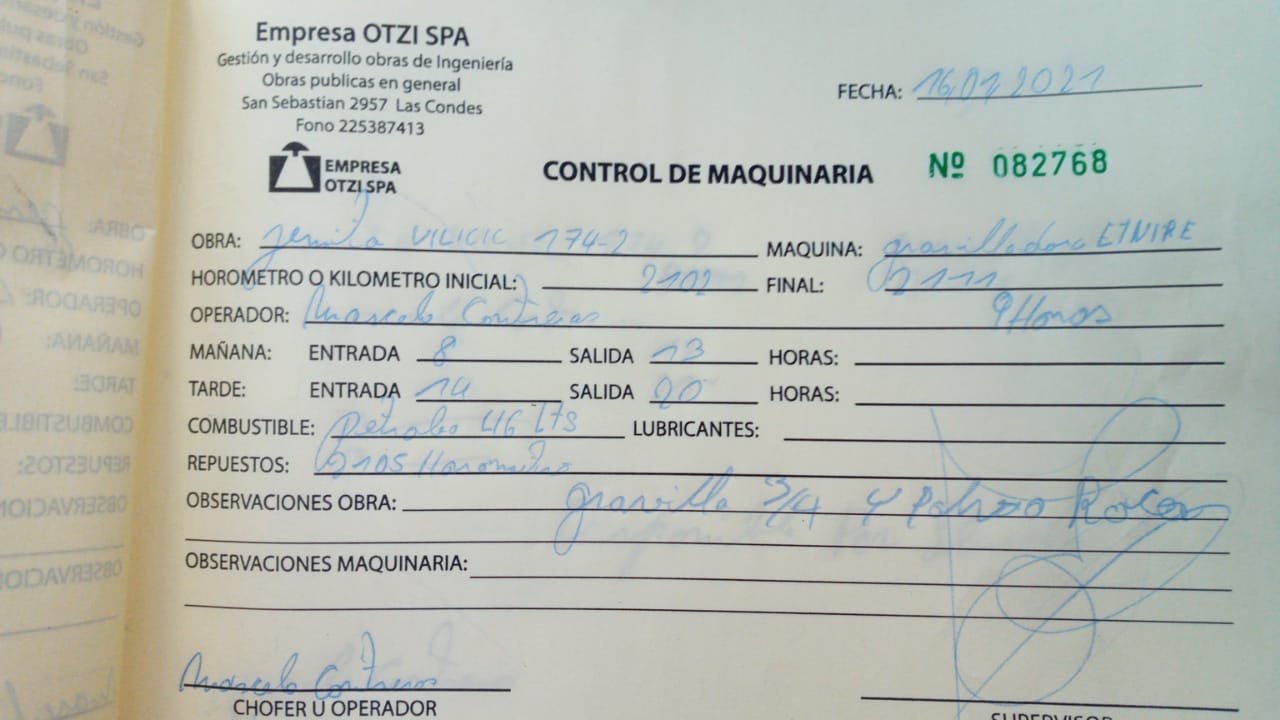 Empresa OTZI SPA
Gestión y desarrollo obras de Ingeniería
Obras publicas en general
San Sebastian 2957 Las Condes
Fono 225387413
FECHA: 16,01,2021
EMPRESA
OTZI SPA
CONTROL DE MAQUINARIA
Nº 082768
OBRA: VILICIC 174-2 MAQUINA: gravilladora ETNIRE
HOROMETRO O KILOMETRO INICIAL: 2102 FINAL: 2111
OPERADOR: Marcelo Contreras 9 Horas
MAÑANA: ENTRADA 8 SALIDA 13 HORAS:
TARDE: ENTRADA 14 SALIDA 20 HORAS:
COMBUSTIBLE: 46 LTS LUBRICANTES:
REPUESTOS: 2105 Horometro
OBSERVACIONES OBRA: gravilla 3/4 Y Polvo Roca
OBSERVACIONES MAQUINARIA:
Marcelo Contreras
CHOFER U OPERADOR
SUPERVISOR